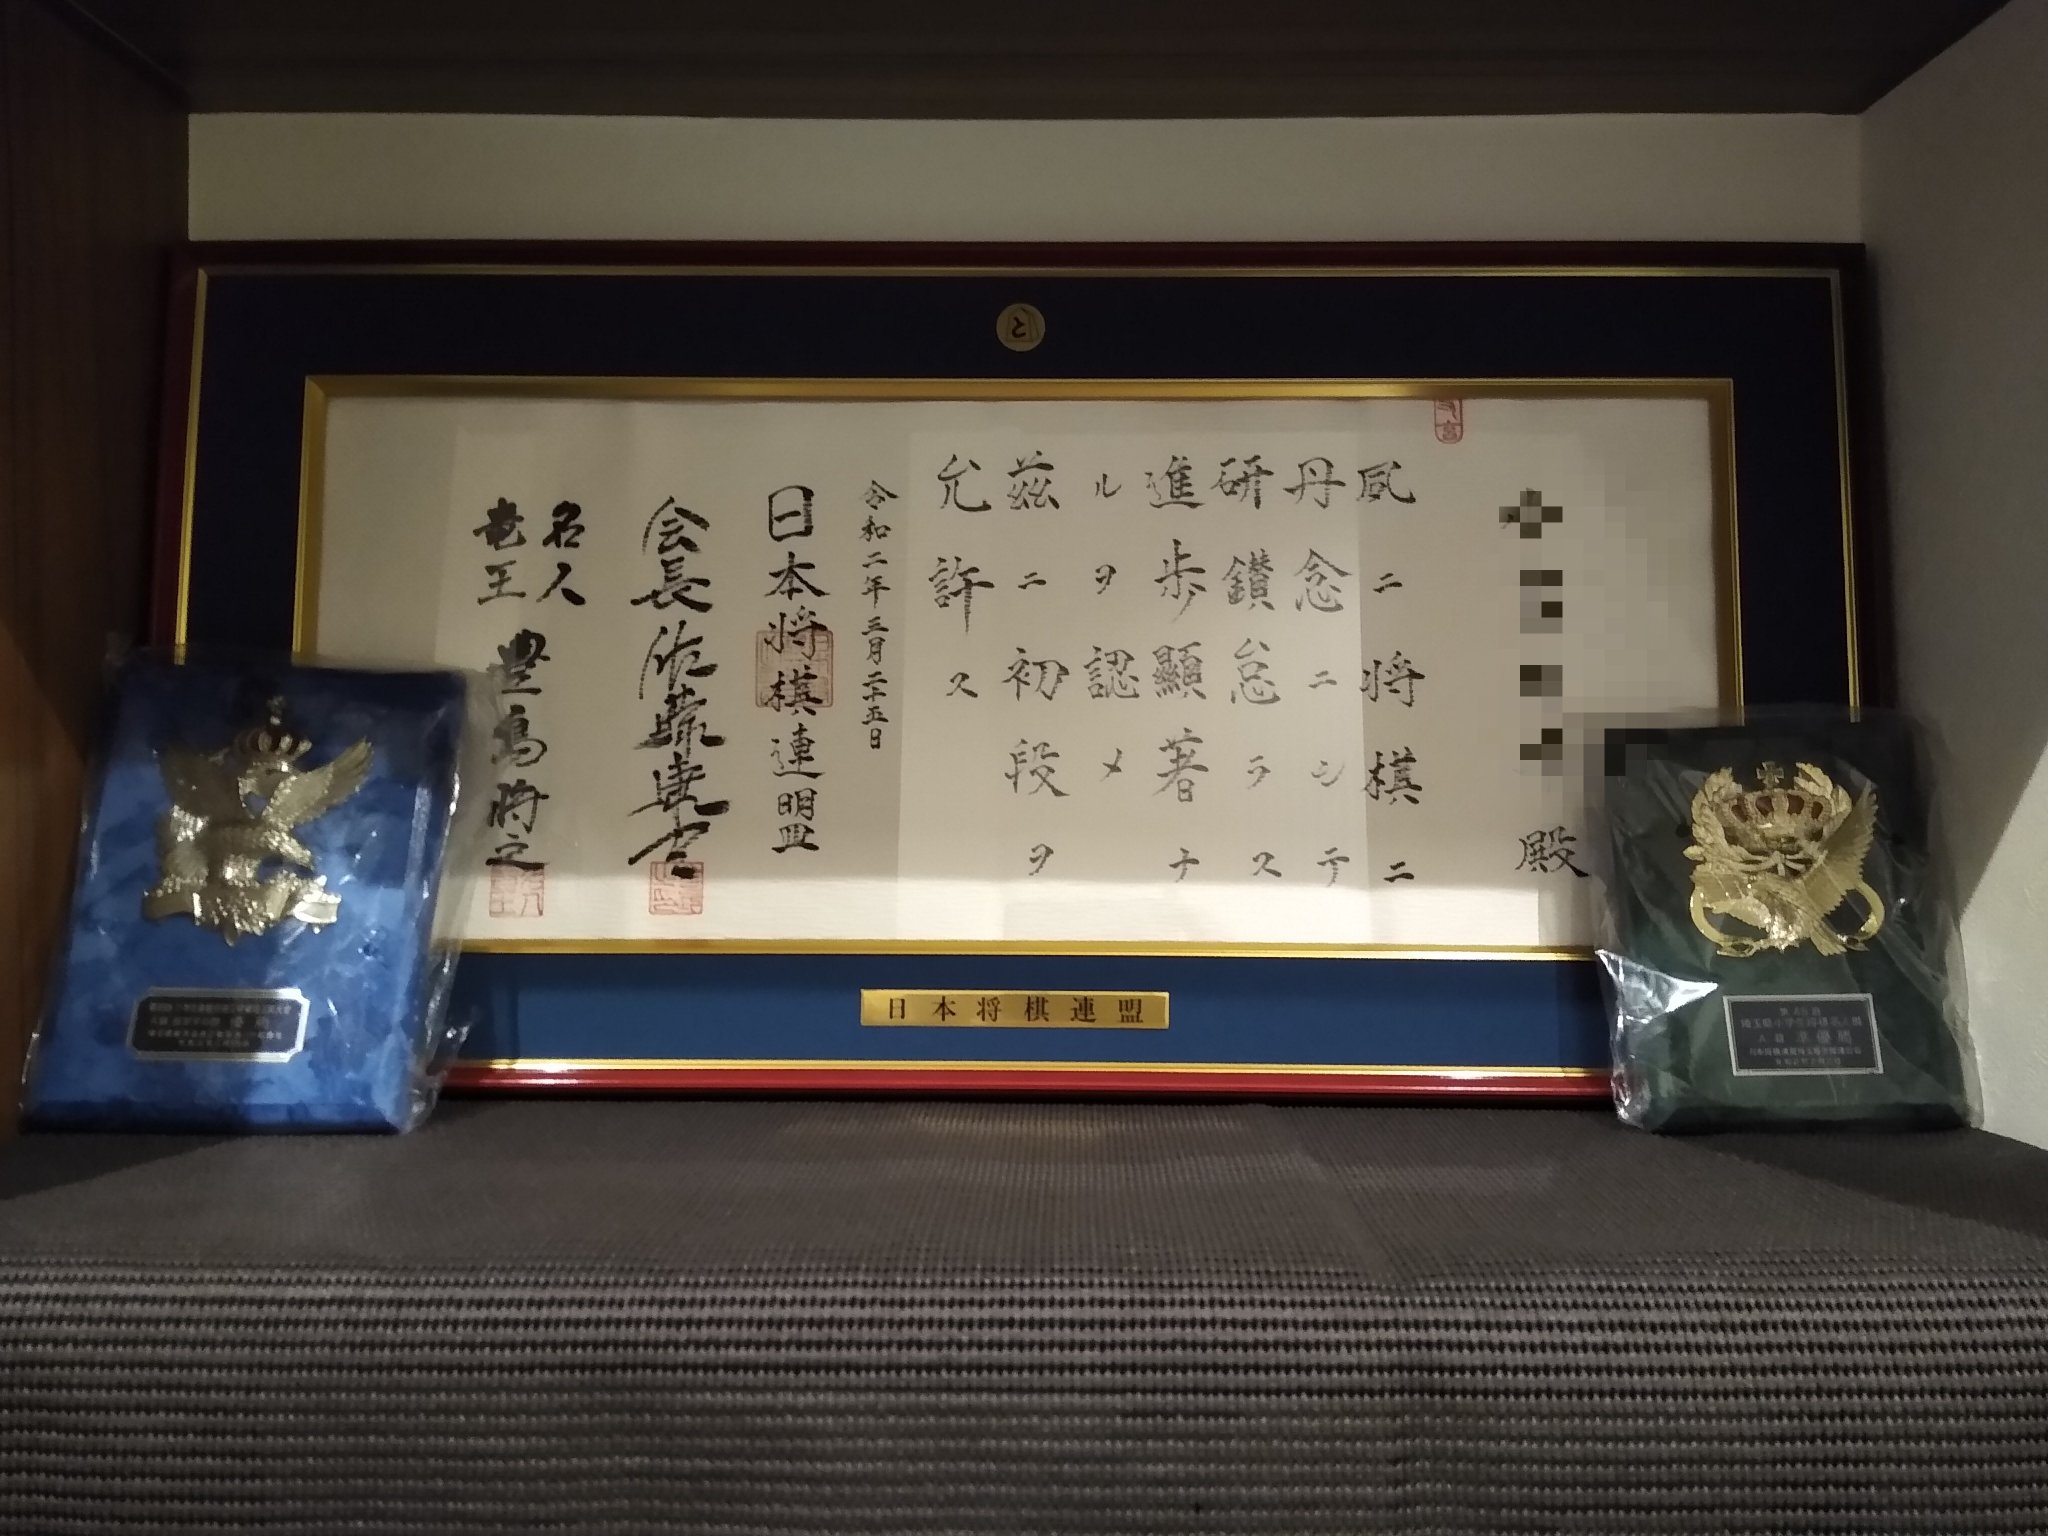 殿
夙ニ将棋ニ
丹念ニシテ
研鑽怠ラス
進歩顯著ナ
ルヲ認メ
茲ニ初段ヲ
允許ス
令和二年三月二十五日
日本将棋連盟
会長 佐藤康光
名人
竜王 豊島将之
日本将棋連盟
と
優勝
第45回
埼玉県小学生将棋名人戦
準優勝